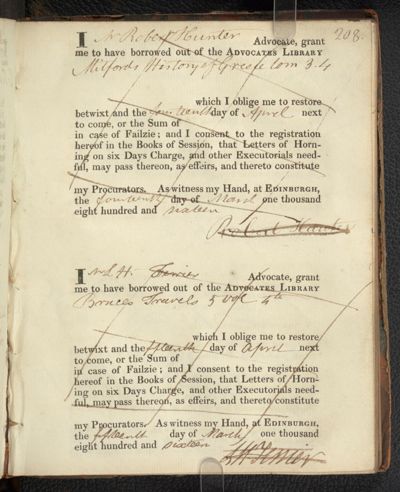 208.
I Mr Robert Hunter Advocate, grant
me to have borrowed out of the ADVOCATES LIBRARY
Mitfords History of Greece tom 3.4
which I oblige me to restore
betwixt and the fourteenth day of April next
to come, or the Sum of
in case of Failzie; and I consent to the registration
hereof in the Books of Session, that Letters of Horn-
ing on six Days Charge, and other Executorials need-
ful, may pass thereon, as effeirs, and thereto constitute
my Procurators. As witness my Hand, at EDINBURGH,
the fourteenth day of March one thousand
eight hundred and sixteen
Robert Hunter
I Advocate, grant
me to have borrowed out of the ADVOCATES LIBRARY
Bruces Travels 5 vols 4to
which I oblige me to restore
betwixt and the fifteenth day of April next
to come, or the Sum of
in case of Failzie; and I consent to the registration
hereof in the Books of Session, that Letters of Horn-
ing on six Days Charge, and other Executorials need-
ful, may pass thereon, as effeirs, and thereto constitute
my Procurators. As witness my Hand, at EDINBURGH,
the fifteenth day of March one thousand
eight hundred and sixteen